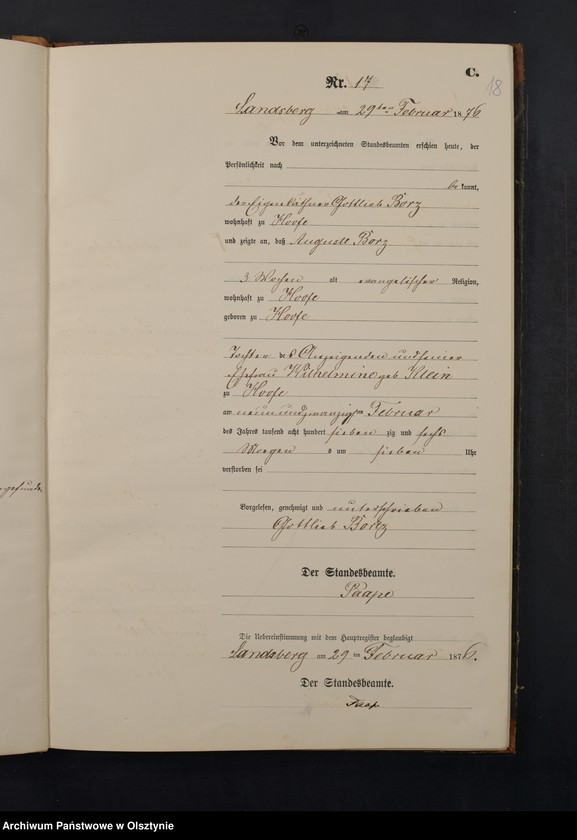 C.
18
Nr. 17
Landsberg am 29ten Februar 1876
Vor dem unterzeichneten Standesbeamten erschien heute, der
Persönlichkeit nach
be kannt,
der Eigenkäthner Gottlieb Borz
wohnhaft zu Hoofe
und zeigte an, daß Auguste Borz
3 Wochen alt evangelischer Religion,
wohnhaft zu Hoofe
geboren zu Hoofe
Tochter des Anzeigenden und seiner
Ehefrau Wilhelmine geb Klein
zu Hoofe
am neunundzwanzigsten Februar
des Jahres tausend acht hundert sieben zig und sechs
Morgens um sieben Uhr
verstorben sei
Vorgelesen, genehmigt und unterschrieben
Gottlieb Bortz
Der Standesbeamte.
Paape
Die Uebereinstimmung mit dem Hauptregister beglaubigt
Landsberg am 29 ten Februar 1876.
Der Standesbeamte.
Paap
Archiwum Państwowe w Olsztynie